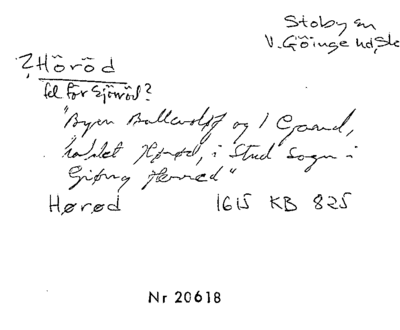 Stoby sn
V. Göinge hd, Sk
? Höröd
fel för Sjöröd?
"Byen Ballerslöf og 1 Gaard,
kaldet Hørød, i Stud Sogn i
Giøng Herred"
Hørød 1615 KB 825
Nr 20618